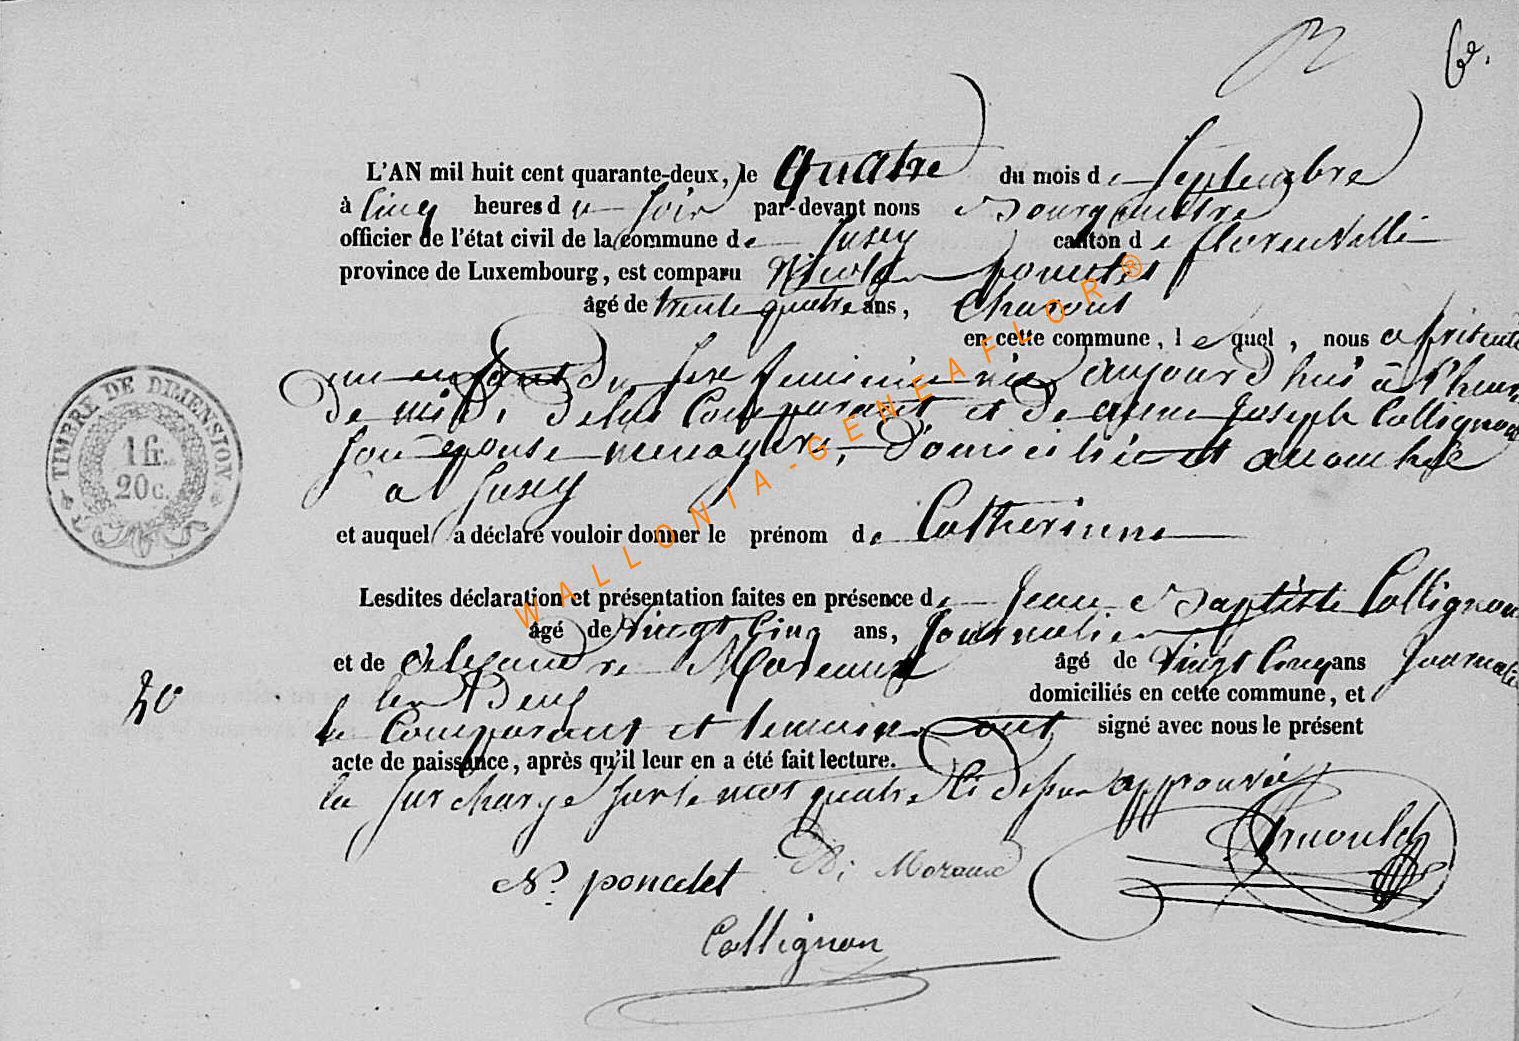 6e.
L'AN mil huit cent quarante-deux, le quatre du mois de Septembre
à Cinq heures du Soir par-devant nous Bourgmestre
officier de l'état civil de la commune de Jusey canton de florenville
province de Luxembourg, est comparu Nicolas poncelet
âgé de trente quatre ans, Charron
en cette commune, lequel, nous a présenté
un enfant du Sexe feminin née aujourd'hui à l'heure
de midi delui Comparant et de anne Joseph Collignon
Son épouse menagère, Domiciliée et accouchée
a Jusey
et auquel a déclaré vouloir donner le prénom de Catherinne
Lesdites déclaration et présentation faites en présence de Jean Baptiste Collignon
âgé de Vingt Cinq ans, Journalier
et de alexandre Moreaux âgé de Vingt Cinq ans Journalier
les Deux domiciliés en cette commune, et
le Comparant et temoins ont signé avec nous le présent
acte de naissance, après qu'il leur en a été fait lecture.
la Surcharge Sur le mot quatre Ci dessus approuvée
N. poncelet Moraux
Collignon
TIMBRE DE DIMENSION
1 fr.
20 c.
20
WALLONIA-GENEAFLOR®